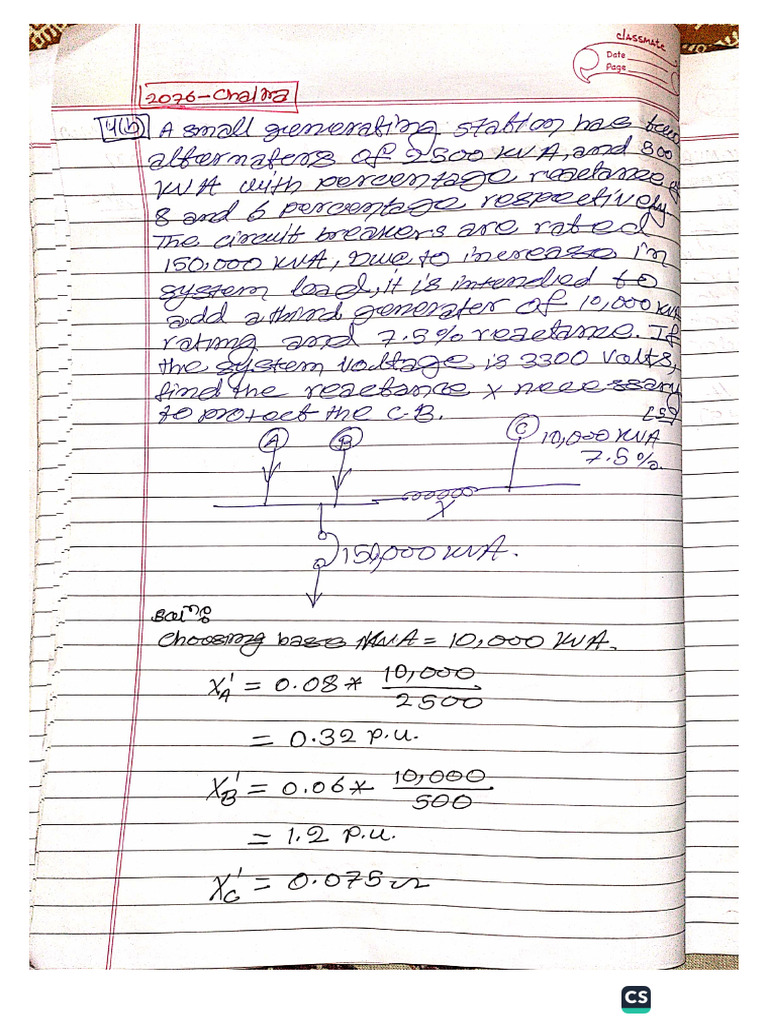 classmate
Date
Page
2076-Chaitra
4(b) A small generating station has two
alternators of 2500 kVA, and 500
kVA with percentage reactance of
8 and 6 percentage respectively.
The circuit breakers are rated
150,000 kVA, Due to increase in
system load, it is intended to
add a third generator of 10,000 kVA
rating and 7.5% reactance. If
the system voltage is 3300 volts,
find the reactance x necessary
to protect the C.B. [5]
A B C 10,000 KVA
7.5%.
X
150,000 KVA.
Soln:
Choosing base KVA = 10,000 KVA.
XA' = 0.08 * 10,000 / 2500
= 0.32 p.u.
XB' = 0.06 * 10,000 / 500
= 1.2 p.u.
XC' = 0.075 Ω
CS